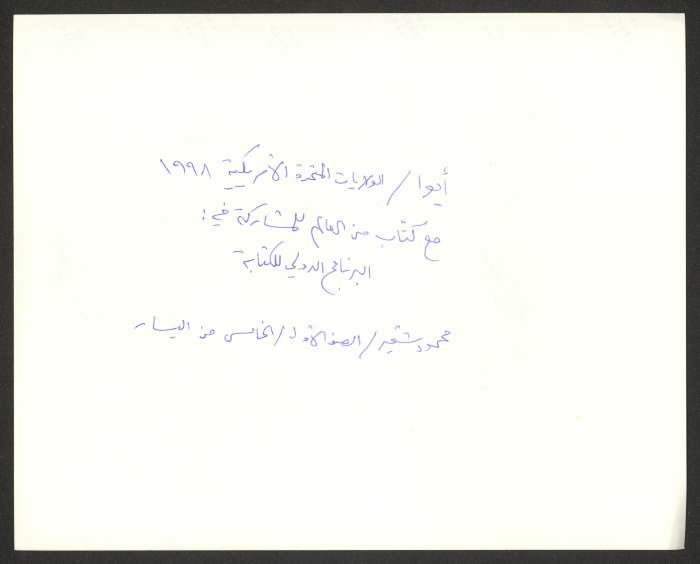 أيوا / الولايات المتحدة الأمريكية ١٩٩٨
مع كتّاب من العالم للمشاركة في:
البرنامج الدولي للكتابة
محمود شقير / الصف الأول / الخامس من اليسار